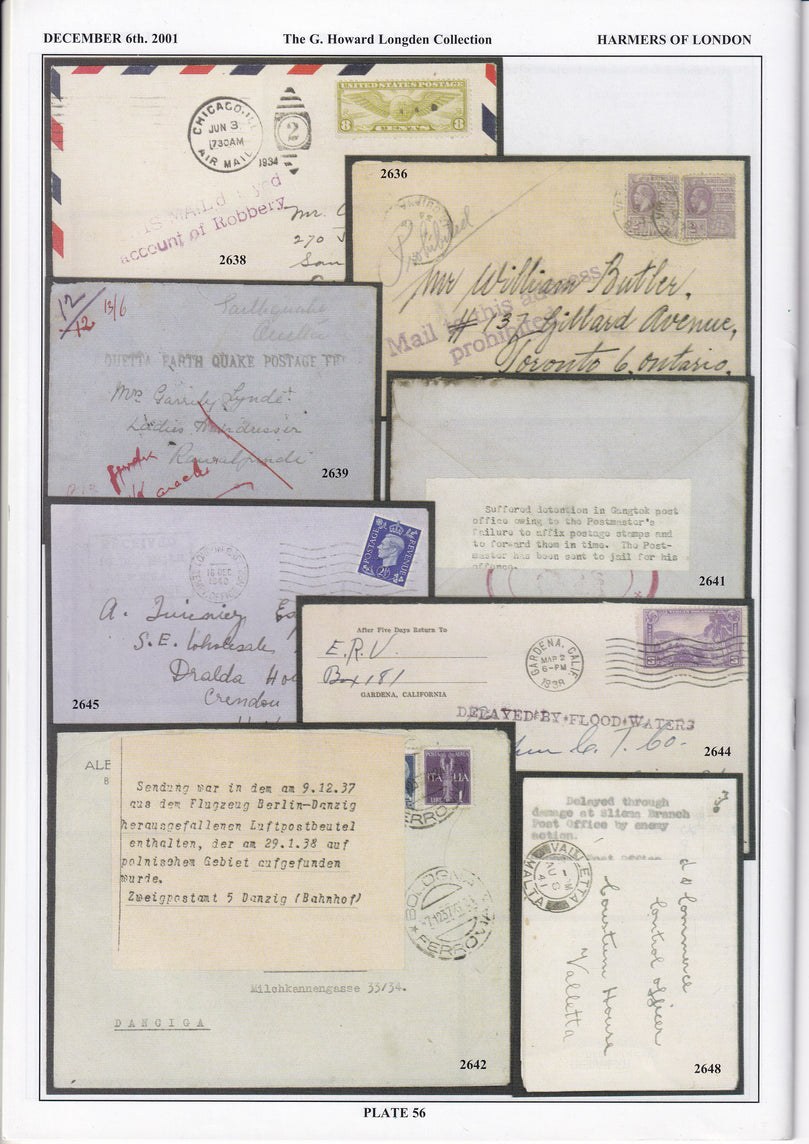 DECEMBER 6th. 2001
The G. Howard Longden Collection
HARMERS OF LONDON
CHICAGO, ILL.
JUN 3
730AM
1934
AIR MAIL
2
UNITED STATES POSTAGE
8 CENTS 8
account of Robbery
Mr.
270
San
2638
2636
Prohibited
Mr William Butler,
# 137 Gillard Avenue,
Toronto 6. Ontario.
Mail to this address
prohibited
12/12
13/6
Earthquake
Quetta
QUETTA EARTH QUAKE POSTAGE
Ladies Hairdresser
Rawalpindi
Karachi
2639
Suffered detention in Gangtok post
office owing to the Postmaster's
failure to affix postage stamps and
to forward them in time. The Post-
master has been sent to jail for his
offence.
2641
16 DEC
1940
POSTAGE REVENUE
2½D
A.
S.E. Wholesale
Dralda Ho
Crendon
2645
After Five Days Return To
E.R.V.
Box 181
GARDENA, CALIFORNIA
GARDENA, CALIF.
MAR 2
6-PM
1938
DELAYED BY FLOOD WATERS
2644
ALE
B
Sendung war in dem am 9.12.37
aus dem Flugzeug Berlin-Danzig
herausgefallenen Luftpostbeutel
enthalten, der am 29.1.38 auf
polnischem Gebiet aufgefunden
wurde.
Zweigpostamt 5 Danzig (Bahnhof)
ITALIA
BOLOGNA
FERROVIA
Milchkannengasse 33/34.
DANCIGA
2642
Delayed through
damage at Sliema Branch
Post Office by enemy
action.
Post Office
VALLETTA
AU 8
41
MALTA
Commerce
Control Officer
House
Valletta
2648
PLATE 56